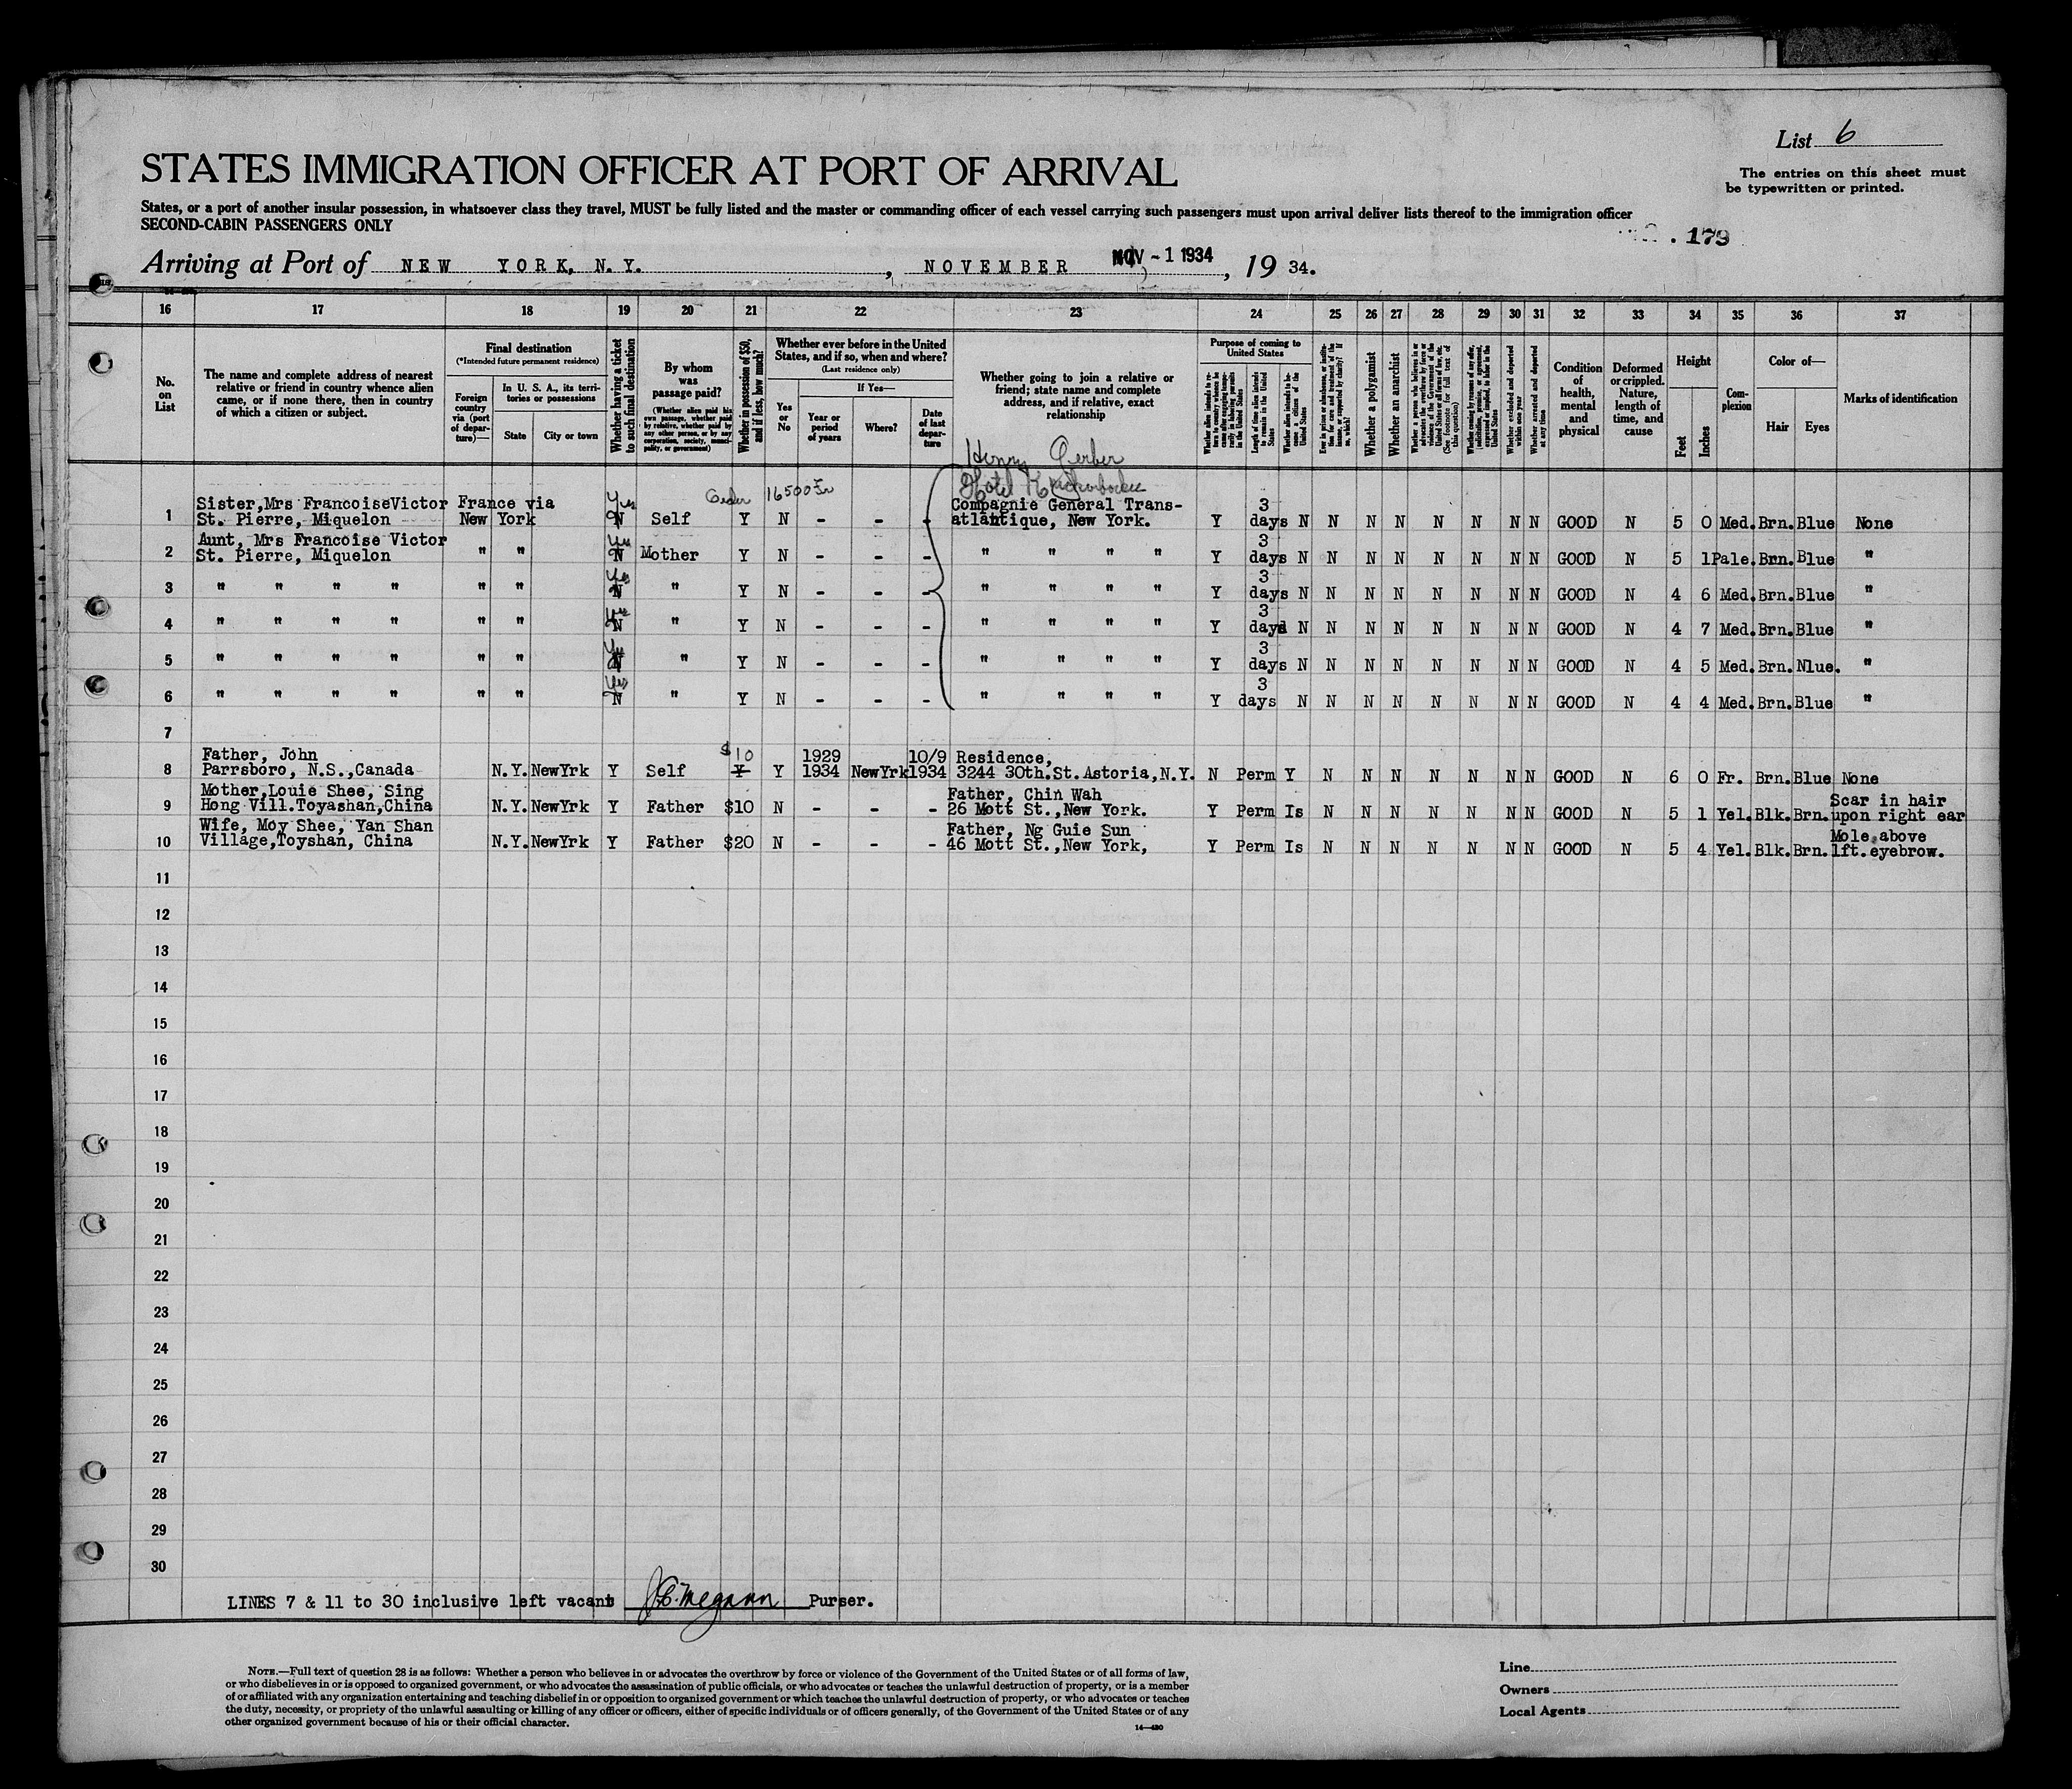 List 6
The entries on this sheet must
be typewritten or printed.
STATES IMMIGRATION OFFICER AT PORT OF ARRIVAL
States, or a port of another insular possession, in whatsoever class they travel, MUST be fully listed and the master or commanding officer of each vessel carrying such passengers must upon arrival deliver lists thereof to the immigration officer
SECOND-CABIN PASSENGERS ONLY
. 179
Arriving at Port of NEW YORK, N.Y., NOVEMBER NOV -1 1934, 19 34.
16 17 18 19 20 21 22 23 24 25 26 27 28 29 30 31 32 33 34 35 36 37
No. on List
The name and complete address of nearest relative or friend in country whence alien came, or if none there, then in country of which a citizen or subject.
Final destination
(*Intended future permanent residence)
Foreign country via (port of departure)—
In U. S. A., its territories or possessions
State
City or town
Whether having a ticket to such final destination
By whom was passage paid?
(Whether alien paid his own passage, whether paid by relative, whether paid by any other person, or by any corporation, society, municipality, or government)
Whether in possession of $50, and if less, how much?
Whether ever before in the United States, and if so, when and where?
(Last residence only)
Yes or No
If Yes—
Year or period of years
Where?
Date of last departure
Whether going to join a relative or friend; state name and complete address, and if relative, exact relationship
Purpose of coming to United States
Length of time alien intends to remain in the United States
Whether alien intends to become a citizen of the United States
Whether a polygamist
Whether an anarchist
Whether excluded and deported within one year
Whether arrested and deported at any time
Condition of health, mental and physical
Deformed or crippled. Nature, length of time, and cause
Height
Feet
Inches
Complexion
Color of—
Hair
Eyes
Marks of identification
Henry Gerber
Hotel Knickerbocker
16500 Fr
1 Sister,Mrs FrancoiseVictor St. Pierre, Miquelon France via New York Yes N Self Y N - - - Compagnie General Transatlantique, New York. Y 3 days N N N N N N N N GOOD N 5 0 Med. Brn. Blue None
2 Aunt, Mrs Francoise Victor St. Pierre, Miquelon " " Yes N Mother Y N - - - " " " " Y 3 days N N N N N N N N GOOD N 5 1 Pale. Brn. Blue "
3 " " " " " " Yes N " Y N - - - " " " " Y 3 days N N N N N N N N GOOD N 4 6 Med. Brn. Blue "
4 " " " " " " Yes N " Y N - - - " " " " Y 3 days N N N N N N N N GOOD N 4 7 Med. Brn. Blue "
5 " " " " " " Yes N " Y N - - - " " " " Y 3 days N N N N N N N N GOOD N 4 5 Med. Brn. Nlue. "
6 " " " " " " Yes N " Y N - - - " " " " Y 3 days N N N N N N N N GOOD N 4 4 Med. Brn. Blue "
7
8 Father, John Parrsboro, N.S.,Canada N.Y. NewYrk Y Self $10 Y Y 1929 1934 NewYrk 10/9 1934 Residence, 3244 30th.St.Astoria,N.Y. N Perm Y N N N N N N N GOOD N 6 0 Fr. Brn. Blue None
9 Mother,Louie Shee, Sing Hong Vill.Toyashan,China N.Y. NewYrk Y Father $10 N - - - Father, Chin Wah 26 Mott St.,New York. Y Perm Is N N N N N N N GOOD N 5 1 Yel. Blk. Brn. Scar in hair upon right ear
10 Wife, Moy Shee, Yan Shan Village,Toyshan, China N.Y. NewYrk Y Father $20 N - - - Father, Ng Guie Sun 46 Mott St.,New York, Y Perm Is N N N N N N N GOOD N 5 4 Yel. Blk. Brn. Mole above lft.eyebrow.
11
12
13
14
15
16
17
18
19
20
21
22
23
24
25
26
27
28
29
30
LINES 7 & 11 to 30 inclusive left vacant Purser.
NOTE.—Full text of question 28 is as follows: Whether a person who believes in or advocates the overthrow by force or violence of the Government of the United States or of all forms of law,
or who disbelieves in or is opposed to organized government, or who advocates the assassination of public officials, or who advocates or teaches the unlawful destruction of property, or is a member
of or affiliated with any organization entertaining and teaching disbelief in or opposition to organized government or which teaches the unlawful destruction of property, or who advocates or teaches
the duty, necessity, or propriety of the unlawful assaulting or killing of any officer or officers, either of specific individuals or of officers generally, of the Government of the United States or of any
other organized government because of his or their official character.
14—420
Line
Owners
Local Agents